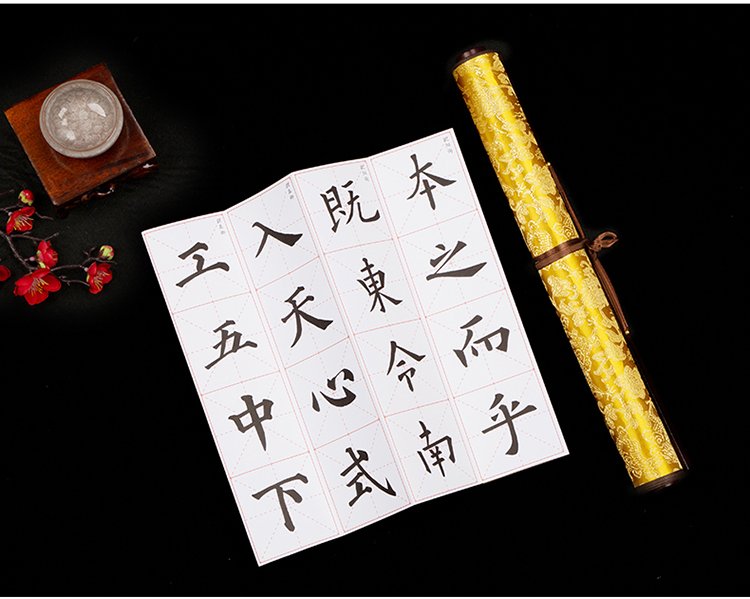 本之而乎
既東令南
入天心式
工五中下